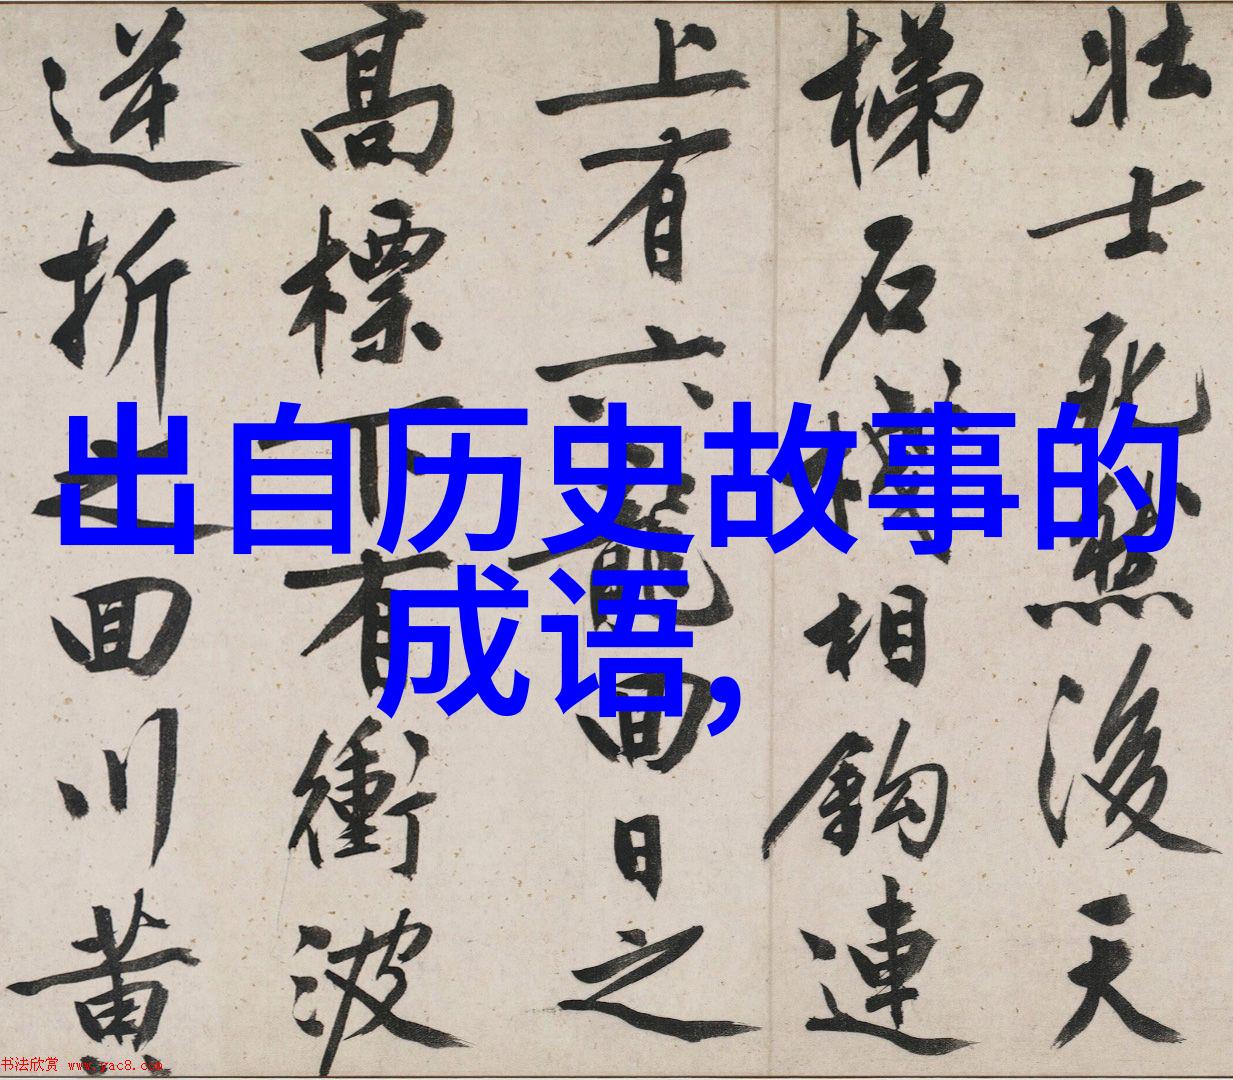 壮士死然後天
梯石棧相鈎連
上有六龍回日之
高標下有衝波
逆折之回川黄
出自历史故事的
成语,
书法欣赏 www.yac8.com